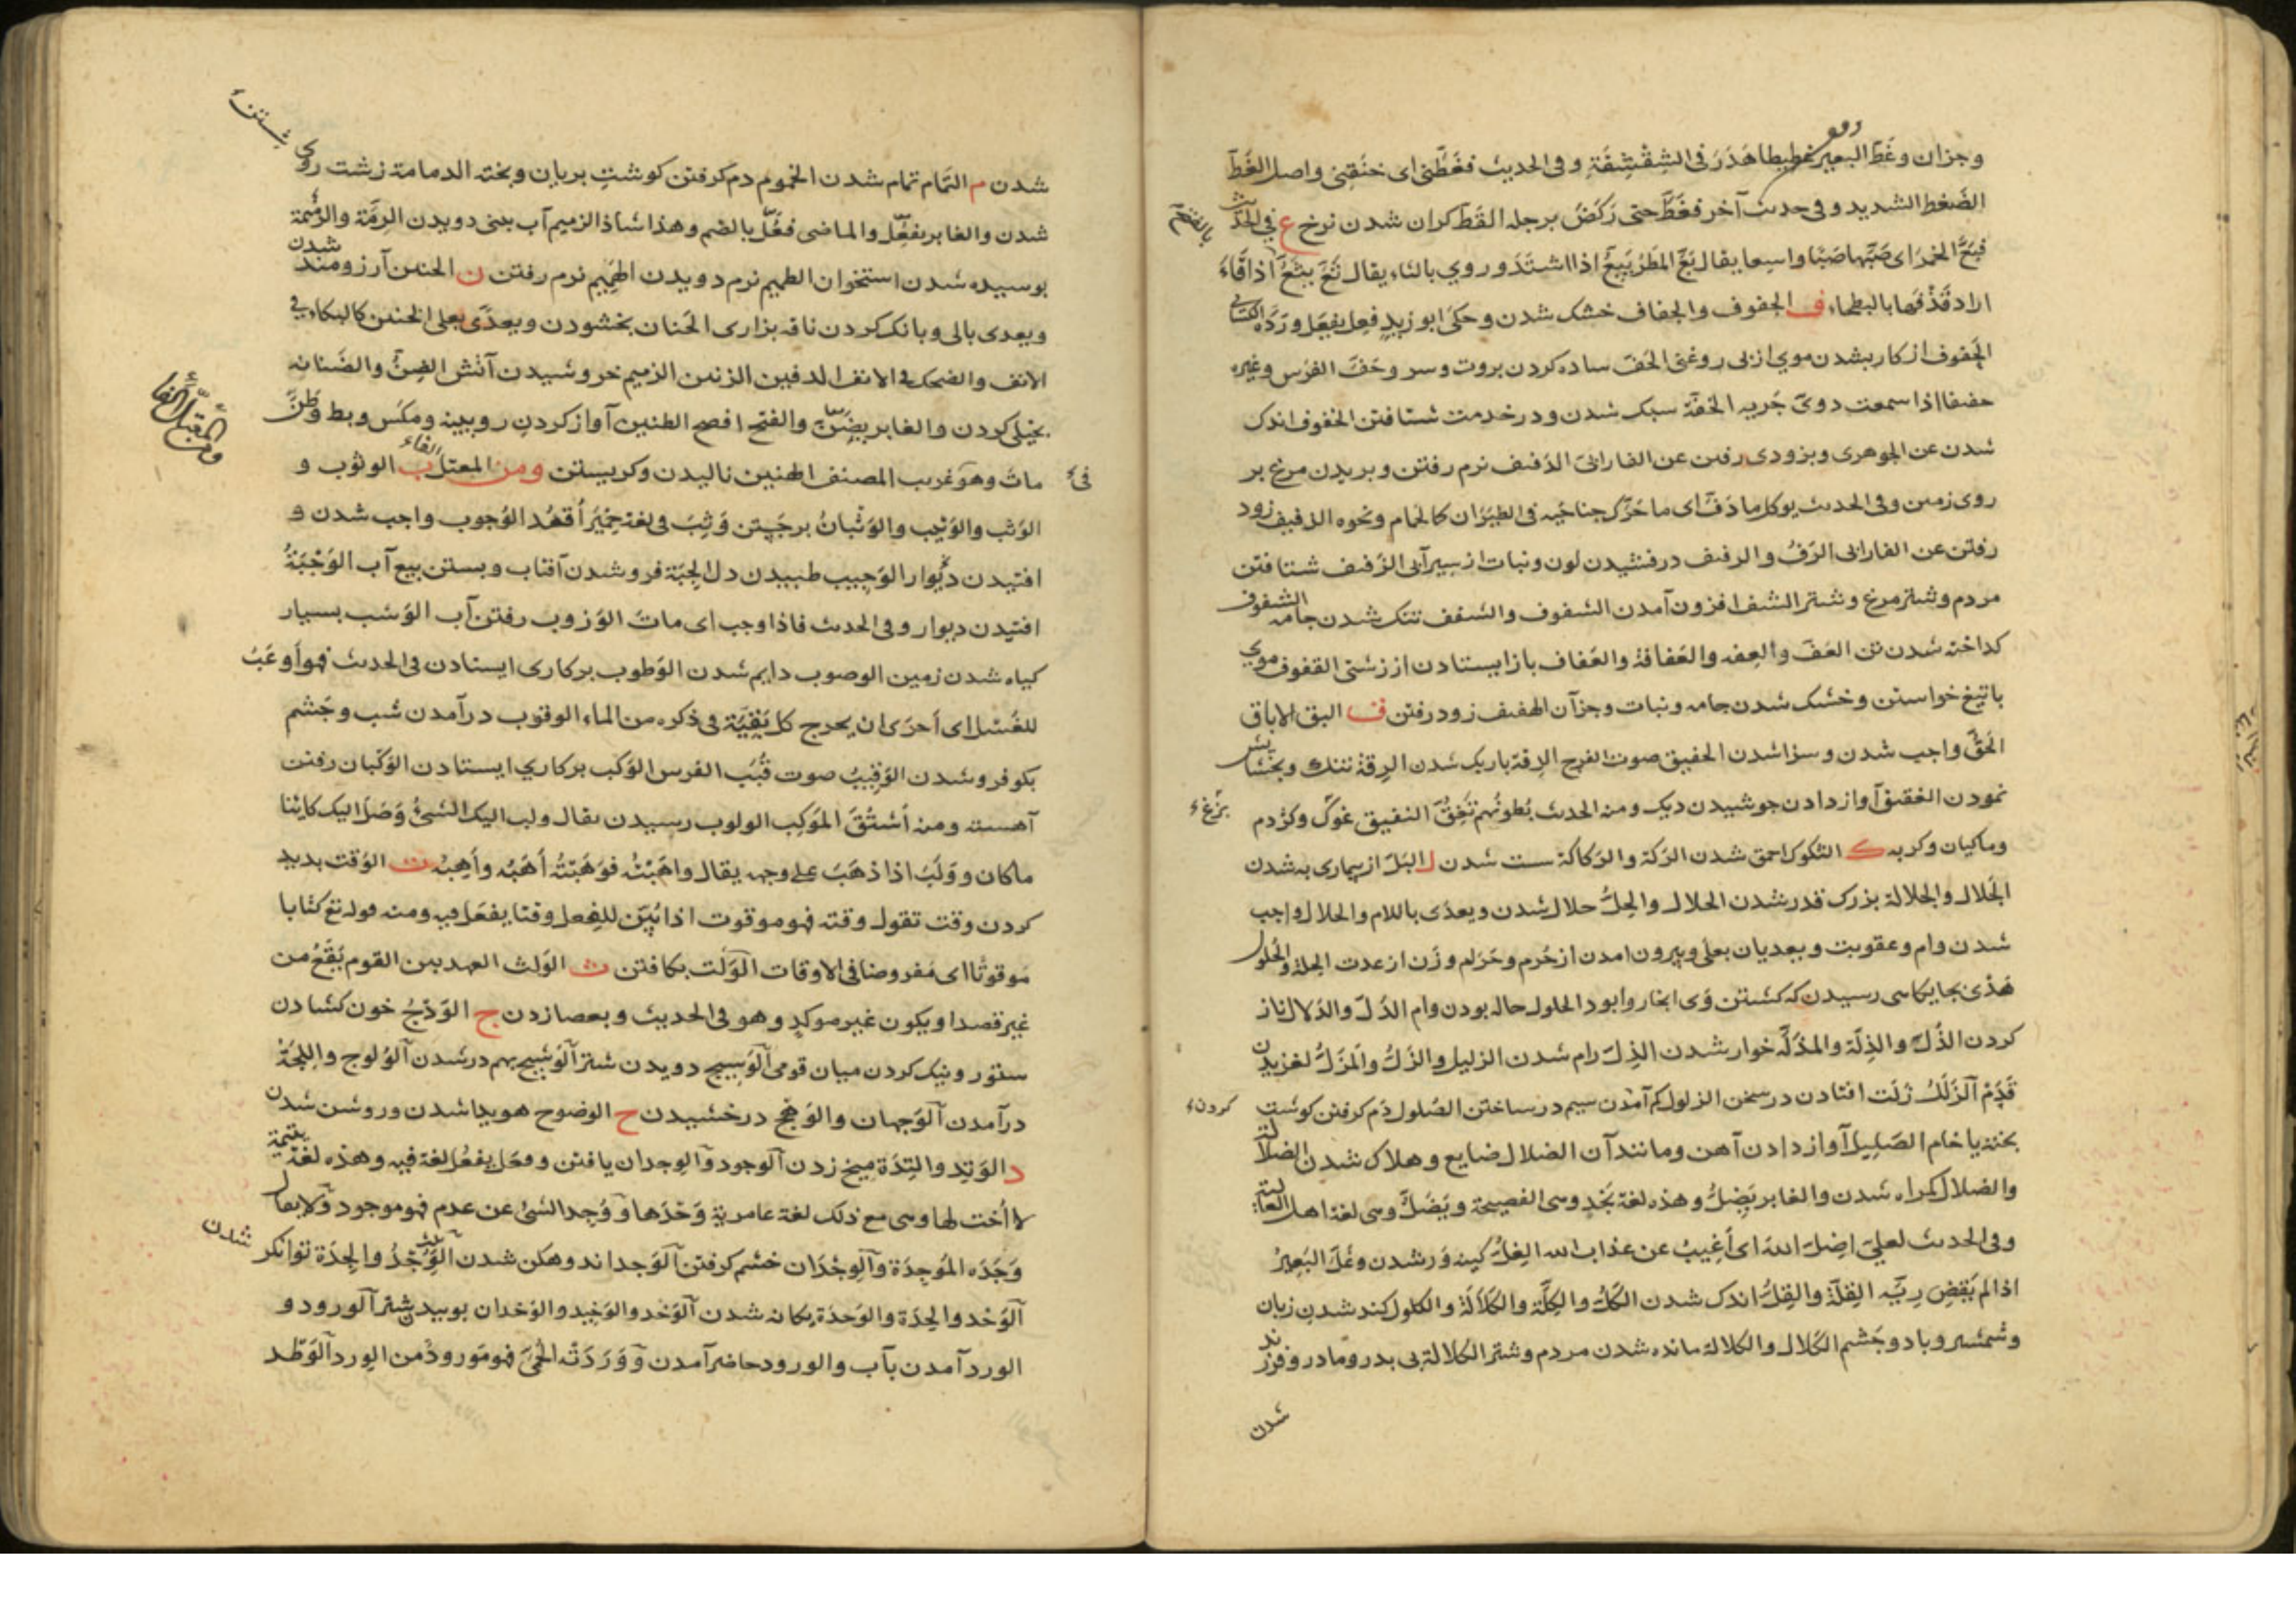 وجزان وغَطّ البعير غطيطا هَدَرَ فى الشِقْشِقَةِ وفى الحديث فغَطَّنى اى خنَقنِى واصل الغَطّ
الضَغط الشديد وفى حديث آخر فغَطَّ حتى رَكَضَ برجله القَطّ كران شدن نرخ ع فى الحديث
فبَعَّ الخمرَ اى صَبَّها صَبًّا واسِعا يقال بَعَّ المطرُ يَبِعُّ اذا اشتدَ وروي بالثاء يقال ثَعَّ يثِعُّ اذا قَاءَ
اراد قَذْفَها بالبطحاء ف الجفوف والجفاف خشك شدن وحكى ابو زيدٍ فعِل يفعَل وردَّه الكسائى
الحَفوف از كار بشدن موي از بى روغنى الحَفّ ساده كردن بروت وسر وحَفّ الفرَس وغيره
حفيفا اذا سمعت دوىّ جَريه الخفّة سبك شدن ودر خدمت شتافتن الخفوف اندك
شدن عن الجوهرى وبزودى رفتن عن الفارابى الدَفيف نرم رفتن وبريدن مرغ بر
روى زمين وفى الحديث يوكل ما دَفّ اى ما حَرّك جناحَيه فى الطيَرَان كالحَمام ونحوه الذفيف زود
رفتن عن الفارابى الرَفُ والرفيف درفشيدن لون ونبات از سيرآبى الزَفيف شتافتن
مردم وشتر مرغ وشتر الشف افزون آمدن الشفوف والشَفَف تنك شدن جامه الشفوف
كداخته شدن تن العَفّ والعِفه والعَفافة والعَفاف باز ايستادن از زشتى القفوف موي
باتيغ خواستن وخشك شدن جامه ونبات وجزآن الهفيف زود رفتن ق البق الاباق
الحَقّ واجب شدن وسزا شدن الحقيق صوت الفرج الدِقة باريك شدن الرِقة تنك وبخشايش
نمودن الغقيق آواز دادن جوشيدن ديك ومن الحديث بُطونُهم تَغِقُّ النقيق غوك وكژدم
وماكيان وكربه ك التكوك احمق شدن الرَكة والرَكاكة سست شدن ل البَلّ از بيمارى به شدن
الجَلال والجلالة بزرك قدر شدن الحلال والحِلُّ حلال شدن ويعدّى باللام والحلال واجب
شدن وام وعقوبت ويعديان بعلى وبيرون امدن از حُرم وحَرَام وزن از عدت الحِلة والحُلول
هَدْى بجايكاسى رسيدن كه كشتن وَى انجا روا بود الحلول حاله بودن وام الدَلّ والدَلال ناز
كردن الذُلّ والذِلّة والمذَلّه خوار شدن الذِلّ رام شدن الزليل والزَلُّ والمَزَلُّ لغزيدن
قَدَمْ الزَلَلُ زَلّت افتادن در سخن الزلول كم آمدن سيم در ساختن الصُلول دَم كرفتن كوشت
بخته يا خام الصَلِيل آواز دادن آهن ومانند آن الضلال ضايع وهلاك شدن الضلالة
والضلال كمراه شدن والغابر يَضِلُّ وهذه لغة نَجدٍ وهى الفصيحة ويَضَلُّ وهى لغة اهل العالية
وفى الحديث لعلىّ اضِلّ اللهَ اى أَغِيبُ عن عذاب الله الغِلُّ كينه وَر شدن وغَلّ البَعِيرُ
اذا لم يَقضِ رِيّه القِلةُ والقِلُّ اندك شدن الكَلُّ والكِلّة والكَلاَلَةُ والكلول كند شدن زبان
وشمشير وباد وجَشم الكَلال والكلالة مانده شدن مردم وشتر الكَلالة بى بدر ومادر وفرزند
شدن
بزغ
كردن
شدن م التَمام تمام شدن الخموم دم كرفتن كوشتِ بريان وبخته الدمامة زشت روى
شدن والغابر يفعِّل والماضى فعَّل بالضم وهذا شاذ الزميم آب بينى دويدن الرِمّة والرُمّة
بوسيده شدن استخوان الطميم نرم دويدن الهَمِيم نرم رفتن ن الحنين آرزومند شدن
ويعدى بالى وبانك كردن ناقه بزارى الحَنان بخشودن ويعدَّى بعلى الخنين كالبكاء فى
الانف والضحك فى الانف الدفين الزنين الزميم خروشيدن آتش الضِنُّ والضَنانة
بخيلى كردن والغابر يضِنّ والفتح افصح الطنين آواز كردنِ رويينه ومكس وبط وطَنّ
ماتَ وهو غريب المصنف الهنين ناليدن وكريستن ومن المعتل الفاء ب الوثوب و
الوَثب والوَثِيب والوَثَبانُ برجَستن وَثِبَ فى لغة حِمْيَرَ أقعُد الوُجوب واجب شدن و
افتيدن ديوار الوَجِيب طبيدن دل الجِبَة فرو شدن آفتاب وبستن بيع آب الوَجْبَةُ
افتيدن ديوار وفى الحديث فاذا وجب اى ماتَ الوَزوب رفتن آب الوَشب بسيار
كياه شدن زمين الوصوب دايم شدن الوَظوب بركارى ايستادن فى الحديث فهو أوعَبُ
للغَسْل اى أحرَى ان يخرج كل بَقِيّة فى ذكره من الماء الوقوب درآمدن شب وجَشم
بكو فرو شدن الوَقِيبُ صوت قُنْبِ الفرس الوَكب بركاري ايستادن الوَكَبان رفتن
آهسته ومنه اُشتُقّ المَوكِب الولوب رسيدن يقال ولب اليك الشئُ وَصَلَ اليك كاينا
ما كان ووَلَبَ اذا ذهَبَ على وجهه يقال واهَبْتُه فوَهَبْتُه أَهَبُه وأَهِبُه ت الوَقت بديد
كردن وقت تقول وقته فهو موقوت اذا بُيّن للفِعل وقتا يفعَل فيه ومنه قوله تع كتابا
مَوقوتًا اى مَفروضا فى الاوقات الوَلت بكافتن ث الوَلث العهد بين القوم يَقَعُ من
غير قصد او يكون غير موكدٍ وهو فى الحديث وبعصا زدن ج الوَدْجُ خون كشادن
ستور ونيك كردن ميان قومى الوَسِيج دويدن شتر الوَشِيج بهم در شدن الوُلوج واللِجَةُ
درآمدن الوَجهان والوَهْج درخشيدن ح الوضوح هويدا شدن وروشن شدن
د الوَتد والتِدَة ميخ زدن الوجود والوِجدان يافتن وفعَل يفعُل لغة فيه وهذه لغة يتيمة
لا اُخت لها وهى مع ذلك لغة عامرية وَحْدَها ووُجِد الشئ عن عدم فهو موجود ولا يقال
وَجَدَه المَوجِدَة والوِجْدَان خشم كرفتن الوَجد اندوهكن شدن الوُجْدُ والجِدَة توانكر شدن
الوَحْد والحِدَة والوَحدَة يكانه شدن الوَخْد والوَخِيد والوَخدان بوييدن شتر الورود و
الورد آمدن بآب والورود حاضر آمدن ووَرَدَتْه الحُمّى فهو مَورودْ من الوِرد الوَطد